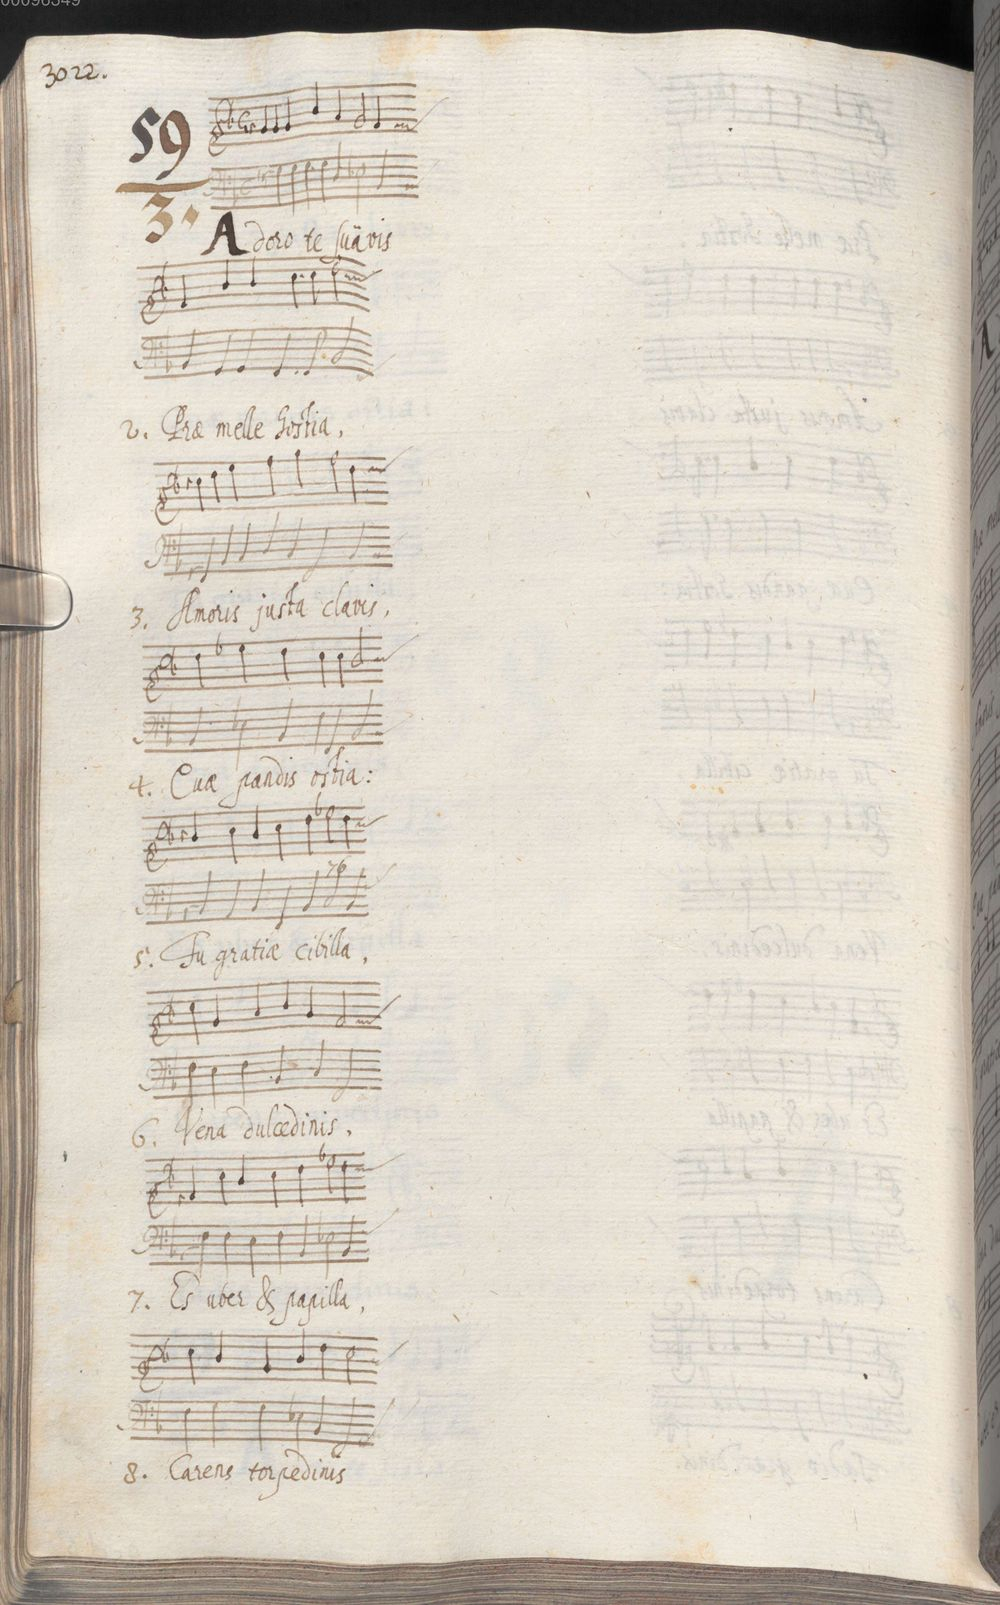 00096349
3022.
59
3.
Adoro te suävis
2. Præ melle hostia,
3. Amoris justa clavis,
4. Quæ pandis ostia:
5. Tu gratiæ cibilla,
76
6. Vena dulcedinis,
7. Es uber & papilla,
8. Carens torpedinis